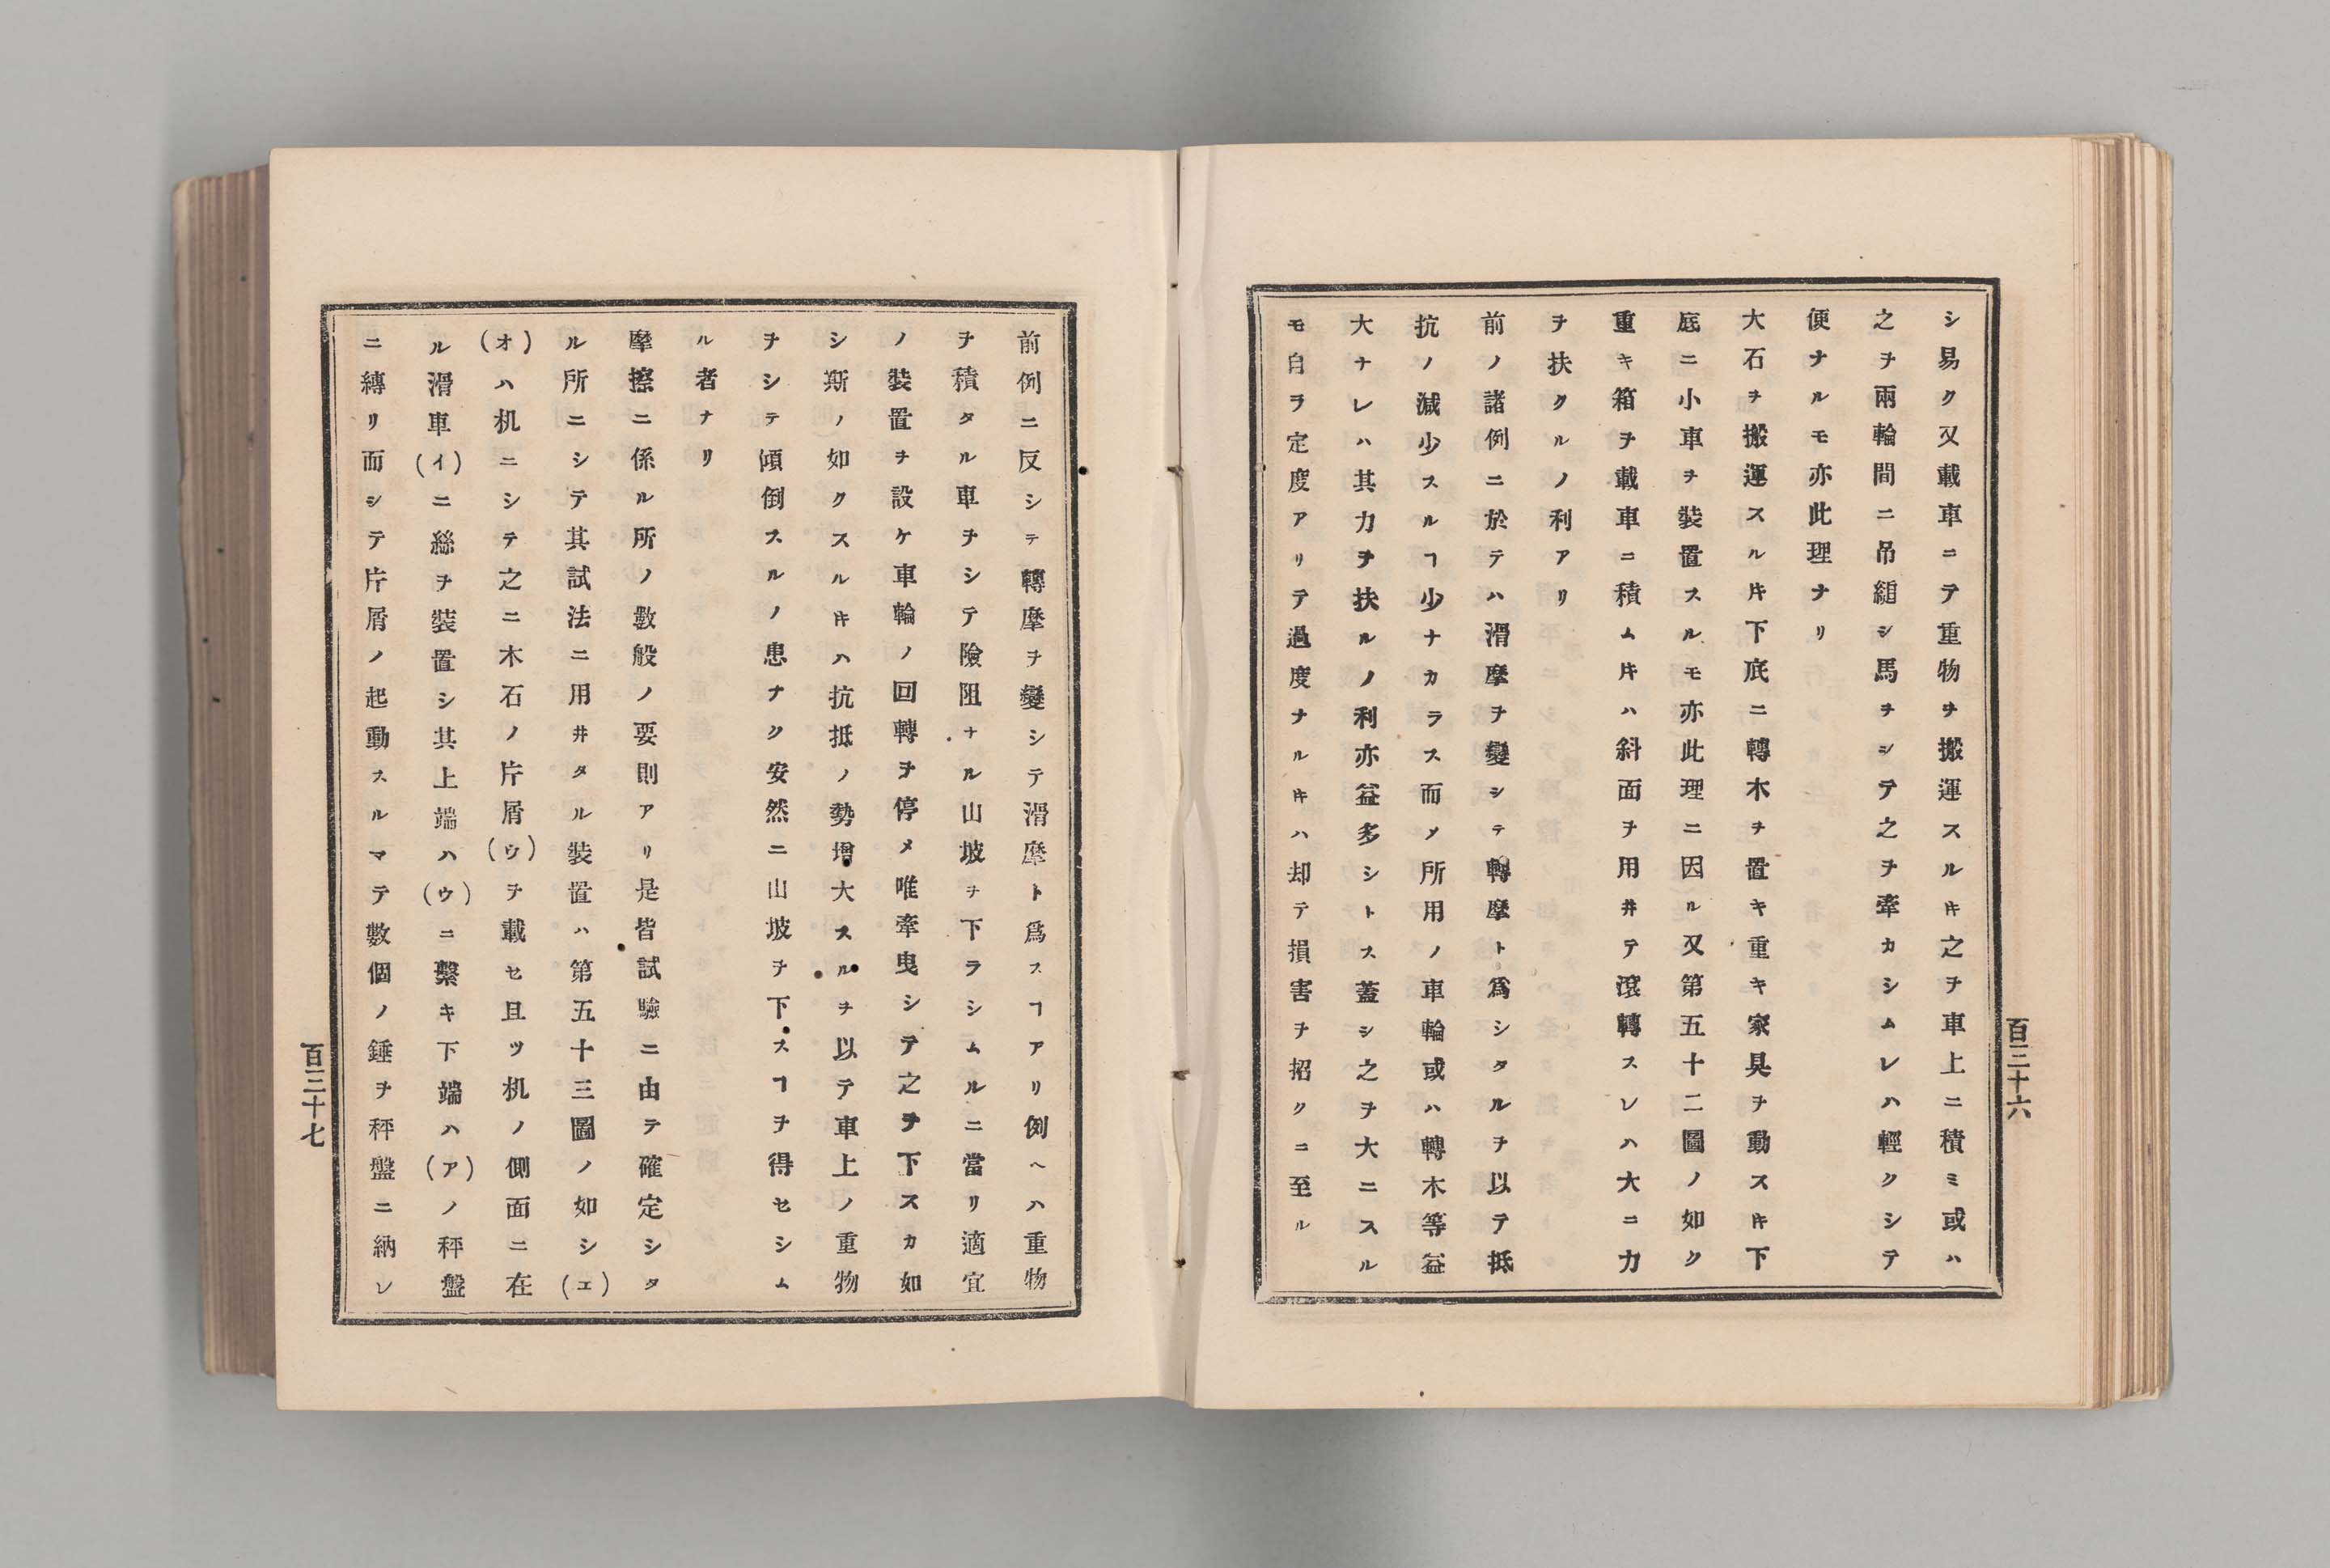 シ易ク又載車ニテ重物ヲ搬運スル𪜈之ヲ車上ニ積ミ或ハ
之ヲ兩輪間ニ吊縋シ馬ヲシテ之ヲ牽カシムレハ輕クシテ
便ナルモ亦此理ナリ
大石ヲ搬運スル𪜈下底ニ轉木ヲ置キ重キ家具ヲ動ス𪜈下
底ニ小車ヲ裝置スルモ亦此理ニ因ル又第五十二圖ノ如ク
重キ箱ヲ載車ニ積ム𪜈ハ斜面ヲ用井テ滾轉スレハ大ニ力
ヲ扶クルノ利アリ
前ノ諸例ニ於テハ滑摩ヲ變シテ轉摩ト爲シタルヲ以テ抵
抗ノ減少スルヿ少ナカラス而ノ所用ノ車輪或ハ轉木等益
大ナレハ其力ヲ扶ルノ利亦益多シトス蓋シ之ヲ大ニスル
モ自ラ定度アリテ過度ナル𪜈ハ却テ損害ヲ招クニ至ル
百三十六
前例ニ反シテ轉摩ヲ變シテ滑摩ト爲スヿアリ例ヘハ重物
ヲ積タル車ヲシテ險阻ナル山坡ヲ下ラシムルニ當リ適宜
ノ裝置ヲ設ケ車輪ノ回轉ヲ停メ唯牽曳シテ之ヲ下スカ如
シ斯ノ如クスル𪜈ハ抗抵ノ勢增大スルヲ以テ車上ノ重物
ヲシテ傾倒スルノ患ナク安然ニ山坡ヲ下スヿヲ得セシム
ル者ナリ
摩擦ニ係ル所ノ數般ノ要則アリ是皆試驗ニ由テ確定シタ
ル所ニシテ其試法ニ用井タル裝置ハ第五十三圖ノ如シ(エ)
(オ)ハ机ニシテ之ニ木石ノ片屑(ウ)ヲ載セ且ツ机ノ側面ニ在
ル滑車(イ)ニ絲ヲ裝置シ其上端ハ(ウ)ニ繫キ下端ハ(ア)ノ秤盤
ニ縛リ而シテ片屑ノ起動スルマテ數個ノ錘ヲ秤盤ニ納レ
百三十七